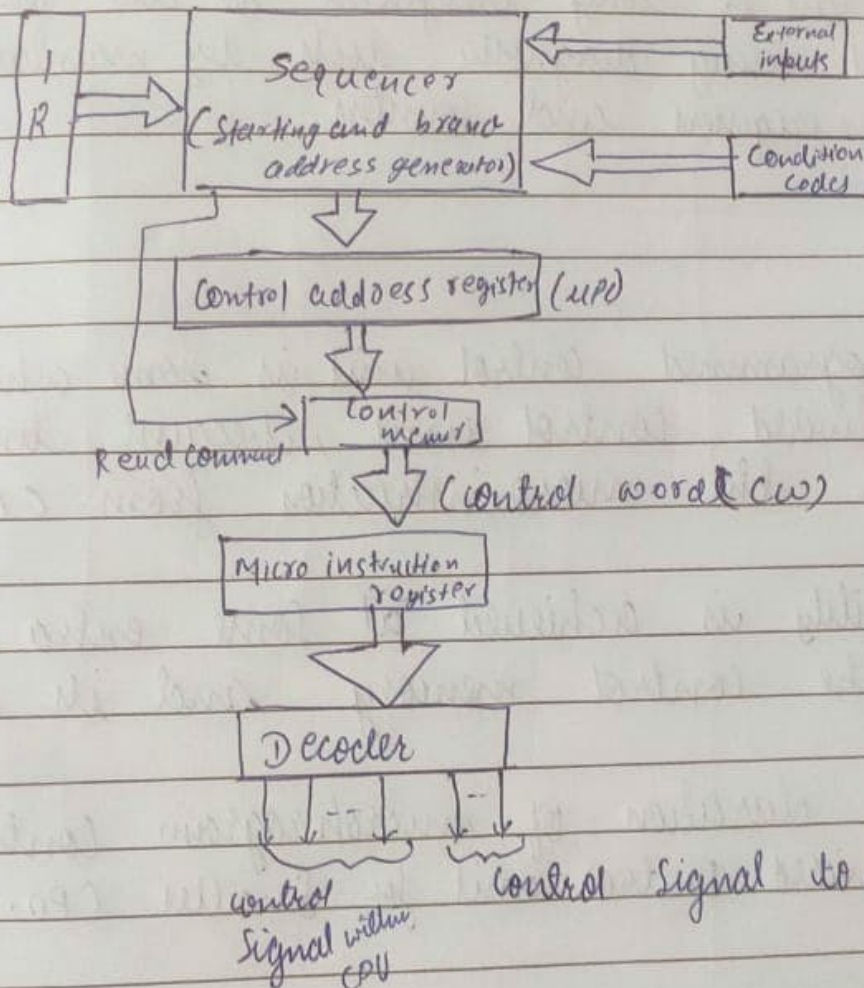 I
R
Sequencer
(Starting and branc
address generator)
External
inputs
Condition
codes
Control address register (μPC)
Control
memory
Read command
(control word (CW)
Micro instruction
register
Decoder
control
signal within
CPU
Control signal to